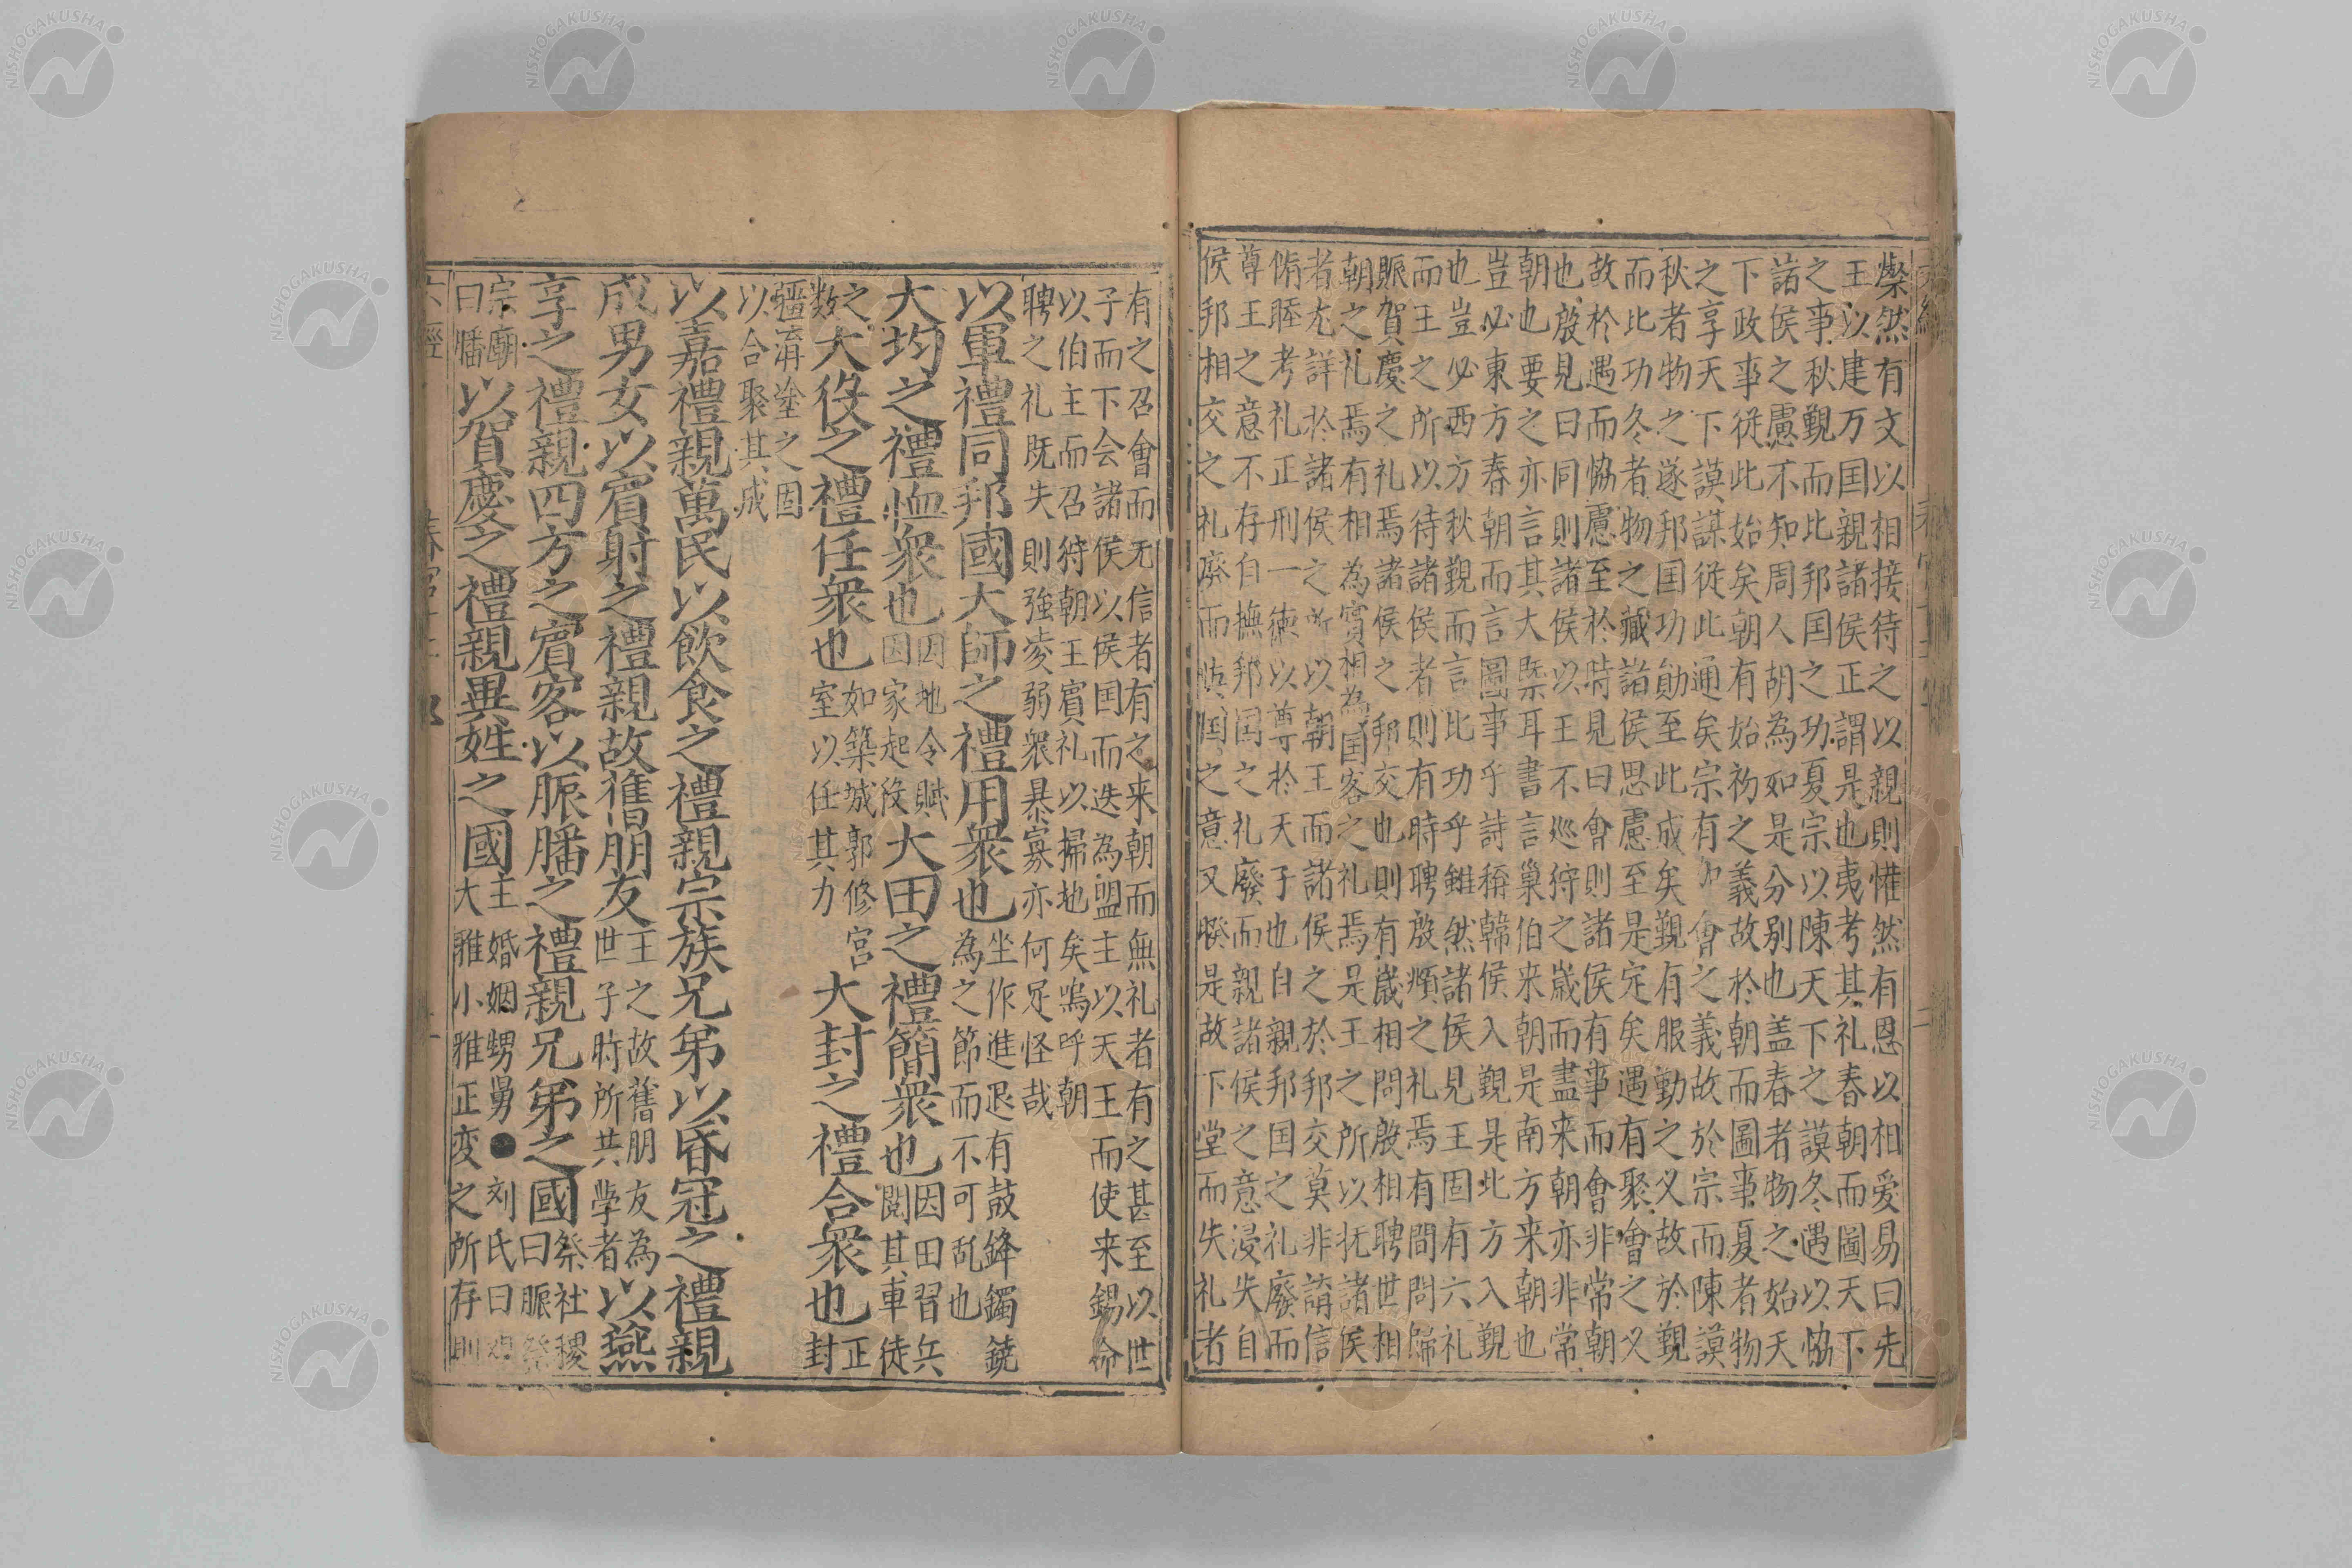 粲然有文以相接待之以親則懽然有恩以相爱易曰先
王以建万囯親諸侯正謂是也夷考其礼春朝而圖天下
之事秋覲而比邦囯之功夏宗以陳天下之謨冬遇以恊
諸侯之慮不知周人胡為如是分别也盖春者物之始天
下政事従此始矣朝有始初之義故於朝而圖事夏者物
之享天下謨謀従此通矣宗有會之義故於宗而陳謨
秋者物之遂邦囯功勛至此成矣覲有服勤之义故於覲
而比功冬者物之藏諸侯思慮至是定矣遇有聚會之义
故於遇而恊慮至於時見曰會則諸侯有事而會非常朝
也殷見曰同則諸侯以王不廵狩之歳而盡来朝亦非常
朝也要之亦言其大槩耳書言巢伯来朝是南方来朝也
豈必東方春朝而言圖事乎詩稱韓侯入覲是北方入覲
也豈必西方秋覲而言比功乎雖然諸侯見王固有六礼
而王之所以待諸侯者則有時聘殷頫之礼焉有間問歸
賑賀慶之礼焉諸侯之邦交也則有歳相問殷相聘世相
朝之礼焉有相為賓相為囯客之礼焉是王之所以抚諸侯
者尤詳於諸侯之所以朝王而諸侯之於邦交莫非講信
脩睦考礼正刑一徳以尊於天子也自親邦囯之礼廢而
尊王之意不存自撫邦囯之礼廢而親諸侯之意浸失自
侯邦相交之礼廢而恤囯之意又暌是故下堂而失礼者
有之召會而无信者有之来朝而無礼者有之甚至以世
子而下会諸侯以侯囯而迭為盟主以天王而使来錫命
以伯主而召狩朝王賓礼以掃地矣嗚呼朝
聘之礼既失則強凌弱衆暴寡亦何足怪哉
以軍禮同邦國大師之禮用衆也坐作進退有鼓鋒鐲鐃
為之節而不可乱也
大均之禮恤衆也因地令賦
因家起役大田之禮簡衆也因田習兵
閲其車徒
之
数大役之禮任衆也如築城郭修宮
室以任其力大封之禮合衆也正
封
疆溝塗之固
以合聚其成
以嘉禮親萬民以飲食之禮親宗族兄弟以昏冠之禮親
成男女以賓射之禮親故舊朋友王之故舊朋友為
世子時所共學者以燕
享之禮親四方之賓客以脤膰之禮親兄弟之國祭社稷
曰脤祭
宗廟
曰膰以賀慶之禮親異姓之國主婚姻甥舅●刘氏曰
大雅小雅正変之所存則